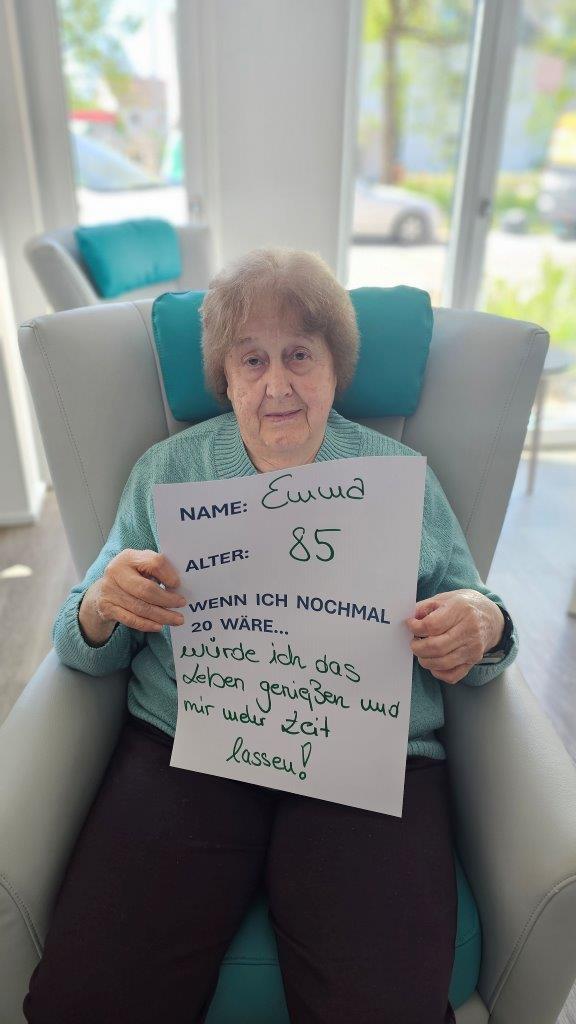 NAME: Emma
ALTER: 85
WENN ICH NOCHMAL
20 WÄRE...
würde ich das
Leben genießen und
mir mehr Zeit
lassen!